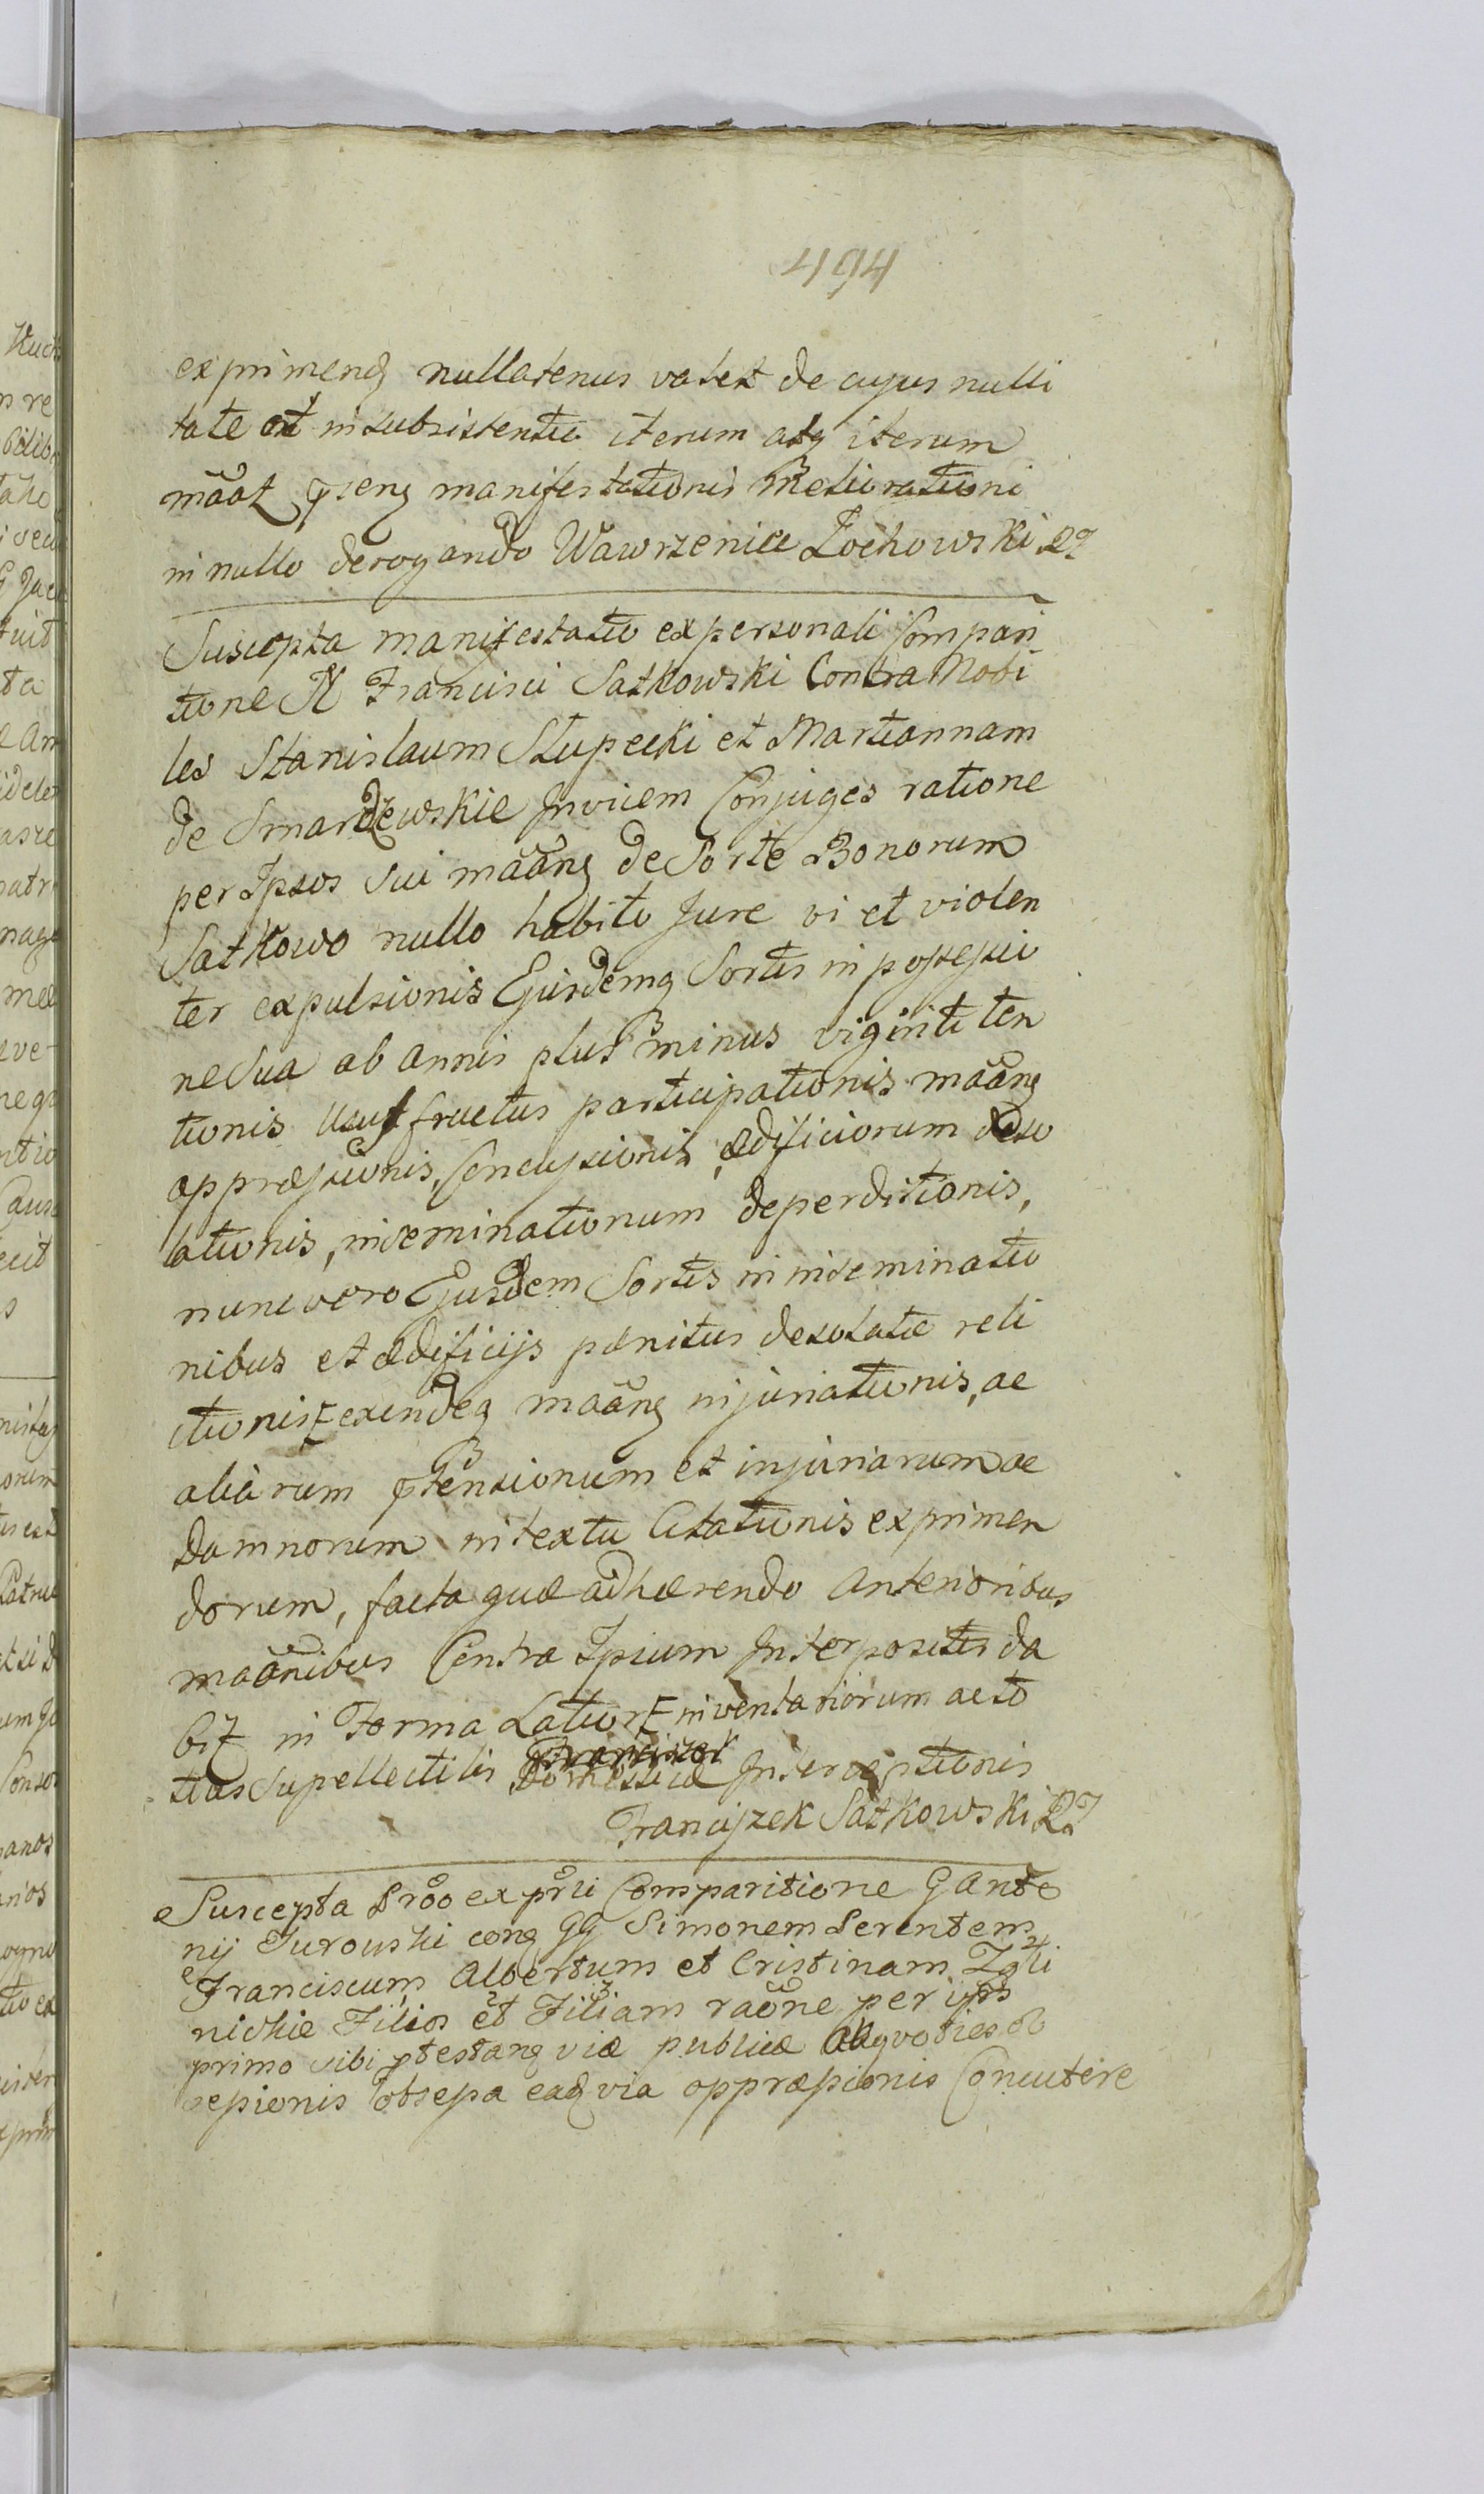 494
exprimend nullatenus valet de cujus nulli
tate et insubsistentia iterum atq iterum
mãat pseng manifestationis Meliorationi
in nullo derogando Wawrzeniec Żochowski
Suscepta manifestatio ex personali Compari
tione N Francisci Satkowski Contra Nobi
les Stanislaum Słupecki et Mariannam
de Smardzewskie Invicem Conjuges ratione
per Ipsos sui mãang de Sorte Bonorum
Satkowo nullo habito Jure vi et violen
ter expulsionis Ejusdemq Sortis in possessio
ne Sua ab annis plus minus viginti ten
tionis Usufructus participationis mãang
oppræssionis, Concussionis ædificiorum deso
lationis, inseminationum deperditionis,
nunc vero Ejusdem Sortis in inseminatio
nibus et ædificijs pænitus desolatæ reli
ctionis exindeq mãang injuriationis, ac
aliarum ptensionum et injuriarum ac
Damnorum in textu Citationis exprimen
dorum, facta quæ adhærendo Anterioribus
mãanibus Contra Ipsum Interpositis da
bit in Forma Latiori inventariorum ac to
tius Supellectilis Domesticæ Interceptionis
Franciszek Satkowski
Suscepta Proo ex prli Comparitione G Anto
nij Turouski cong GG Simonem Serentem
Franciscum Albertum et Cristinam
nickie Filios et Filiam raõne per ipos
primo sibi ptestang viæ publicæ aliqvoties ob
sepionis obsepa eaq via oppræpionis Concutere